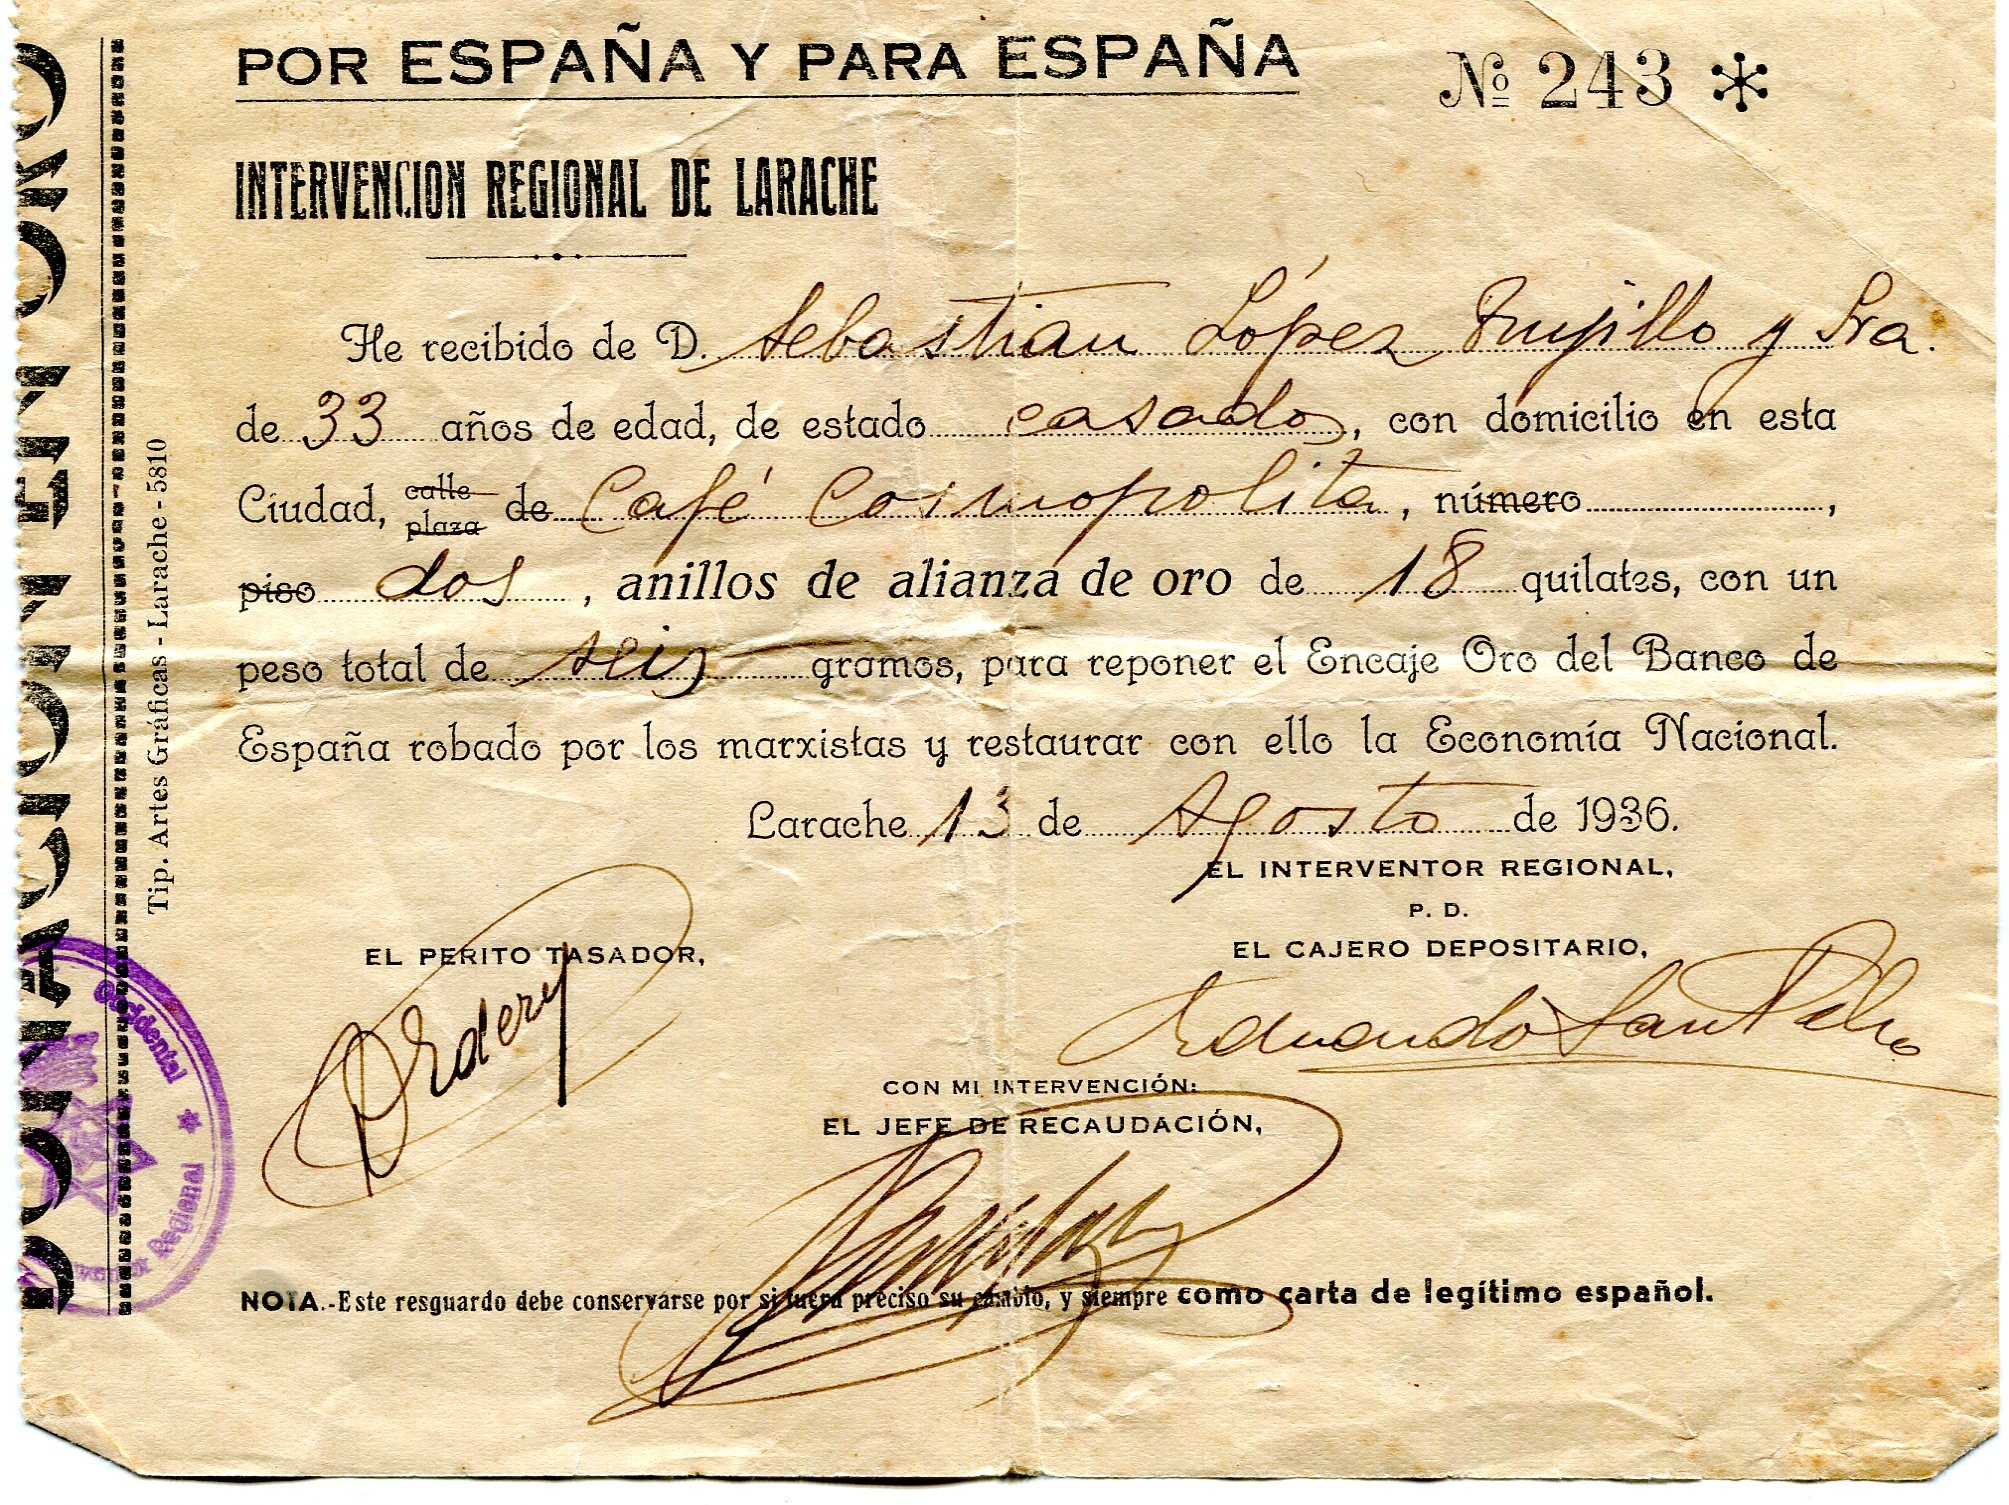 POR ESPAÑA Y PARA ESPAÑA
Nº 243 *
INTERVENCION REGIONAL DE LARACHE
He recibido de D. Sebastian López Trujillo y Sra.
de 33 años de edad, de estado casado, con domicilio en esta
Ciudad, calle plaza de Café Cosmopolita, número ,
piso dos , anillos de alianza de oro de 18 quilates, con un
peso total de seis gramos, para reponer el Encaje Oro del Banco de
España robado por los marxistas y restaurar con ello la Economía Nacional.
Larache 13 de Agosto de 1936.
EL INTERVENTOR REGIONAL,
P. D.
EL PERITO TASADOR,
EL CAJERO DEPOSITARIO,
Eduardo
CON MI INTERVENCIÓN:
EL JEFE DE RECAUDACIÓN,
NOTA.-Este resguardo debe conservarse por si fuera preciso su cambio, y siempre como carta de legítimo español.
DONACION EN ORO
Tip. Artes Gráficas - Larache - 5810
Occidental * Regional